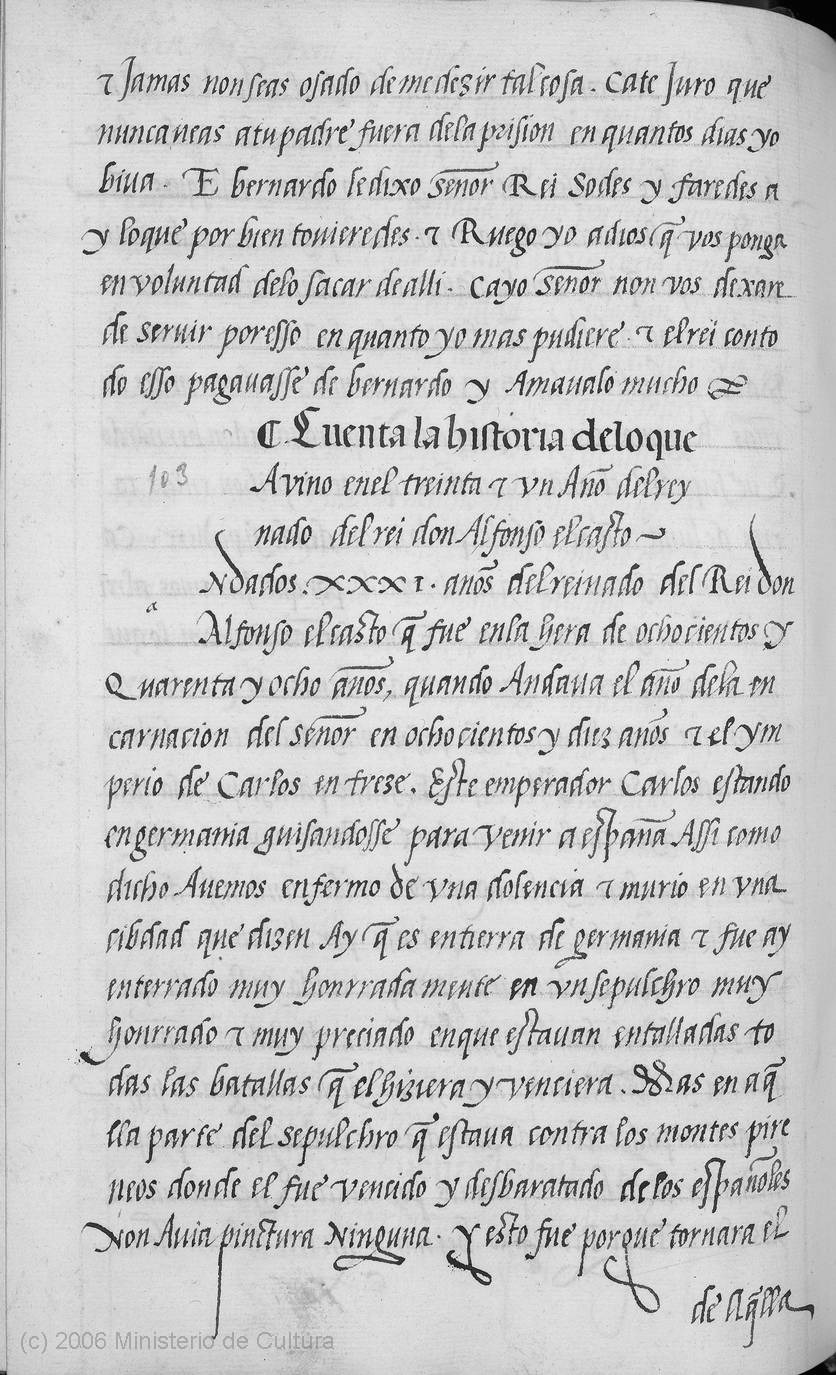 τ Jamas non seas osado de me dezir tal cosa. Cate Juro que
nunca ueas a tu padre fuera dela prision en quantos dias yo
biua. E bernardo le dixo señor Rei Sodes y faredes a
y lo que por bien touieredes. τ Ruego yo a dios q̃ vos ponga
en voluntad delo sacar de alli. Ca yo señor non vos dexare
de seruir por esso en quanto yo mas pudiere. τ el rei con to
do esso pagauasse de bernardo y Amaualo mucho
¶. Cuenta la historia delo que
103
Avino en el treinta τ vn Año del rey
nado del rei don Alfonso el casto ~
Ndados. XXXI. años del reinado del Rei don
a
Alfonso el casto q̃ fue en la hera de ochocientos y
Quarenta y ocho años, quando Andaua el año dela en
carnacion del señor en ochocientos y diez años τ el ym
perio de Carlos en treze. Este emperador Carlos estando
en germania guisandosse para venir a españa Assi como
dicho Auemos enfermo de vna dolencia τ murio en vna
cibdad que dizen Ay q̃ es en tierra de germania τ fue ay
enterrado muy honrrada mente en vn sepulchro muy
honrrado τ muy preciado en que estauan entalladas to
das las batallas q̃ el hiziera y venciera. Mas en aq̃
lla parte del sepulchro q̃ estaua contra los montes pire
neos donde el fue vencido y desbaratado delos españoles
Non Auia pinctura Ninguna. Y esto fue porque tornara el
de Aq̃lla
(c) 2006 Ministerio de Cultura